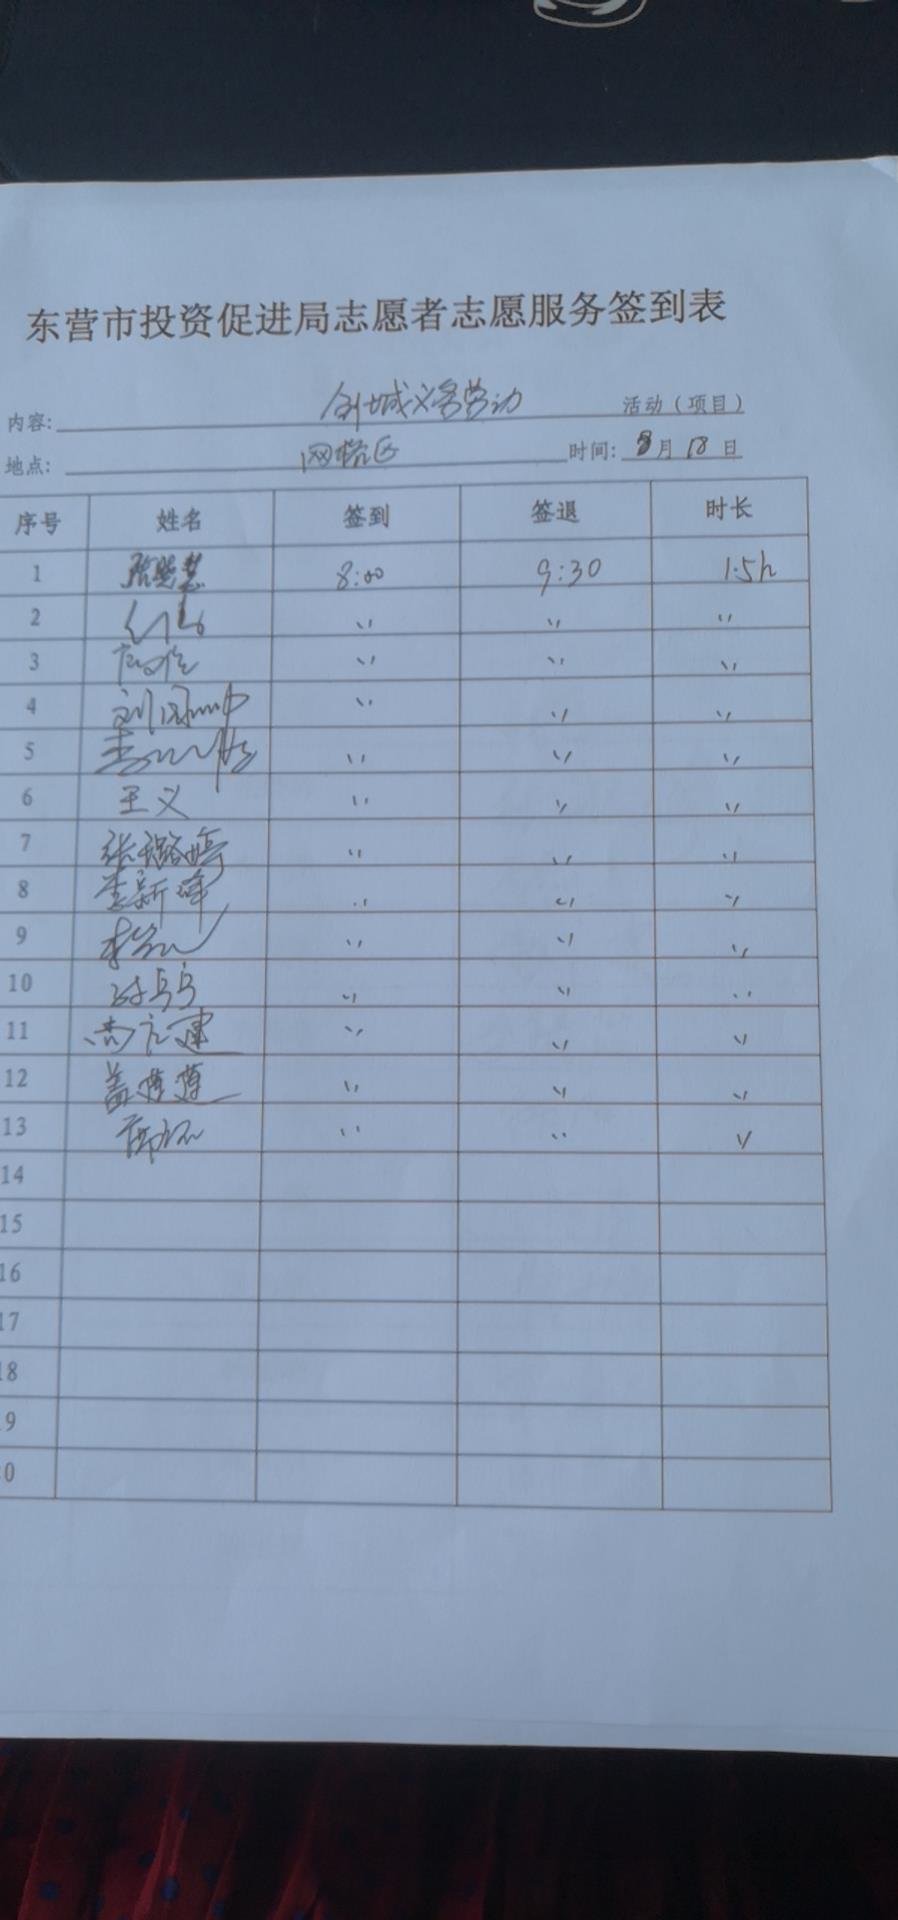 东营市投资促进局志愿者志愿服务签到表
内容: 创城义务劳动 活动（项目）
地点: 网格区 时间: 8月18日
序号 姓名 签到 签退 时长
1 张晓慧 8:00 9:30 1.5h
2 〃 〃 〃
3 〃 〃 〃
4 〃 〃 〃
5 〃 〃 〃
6 王义 〃 〃 〃
7 张璐婷 〃 〃 〃
8 李新峰 〃 〃 〃
9 〃 〃 〃
10 〃 〃 〃
11 〃 〃 〃
12 盖萍萍 〃 〃 〃
13 〃 〃 〃
14
15
16
17
18
9
0